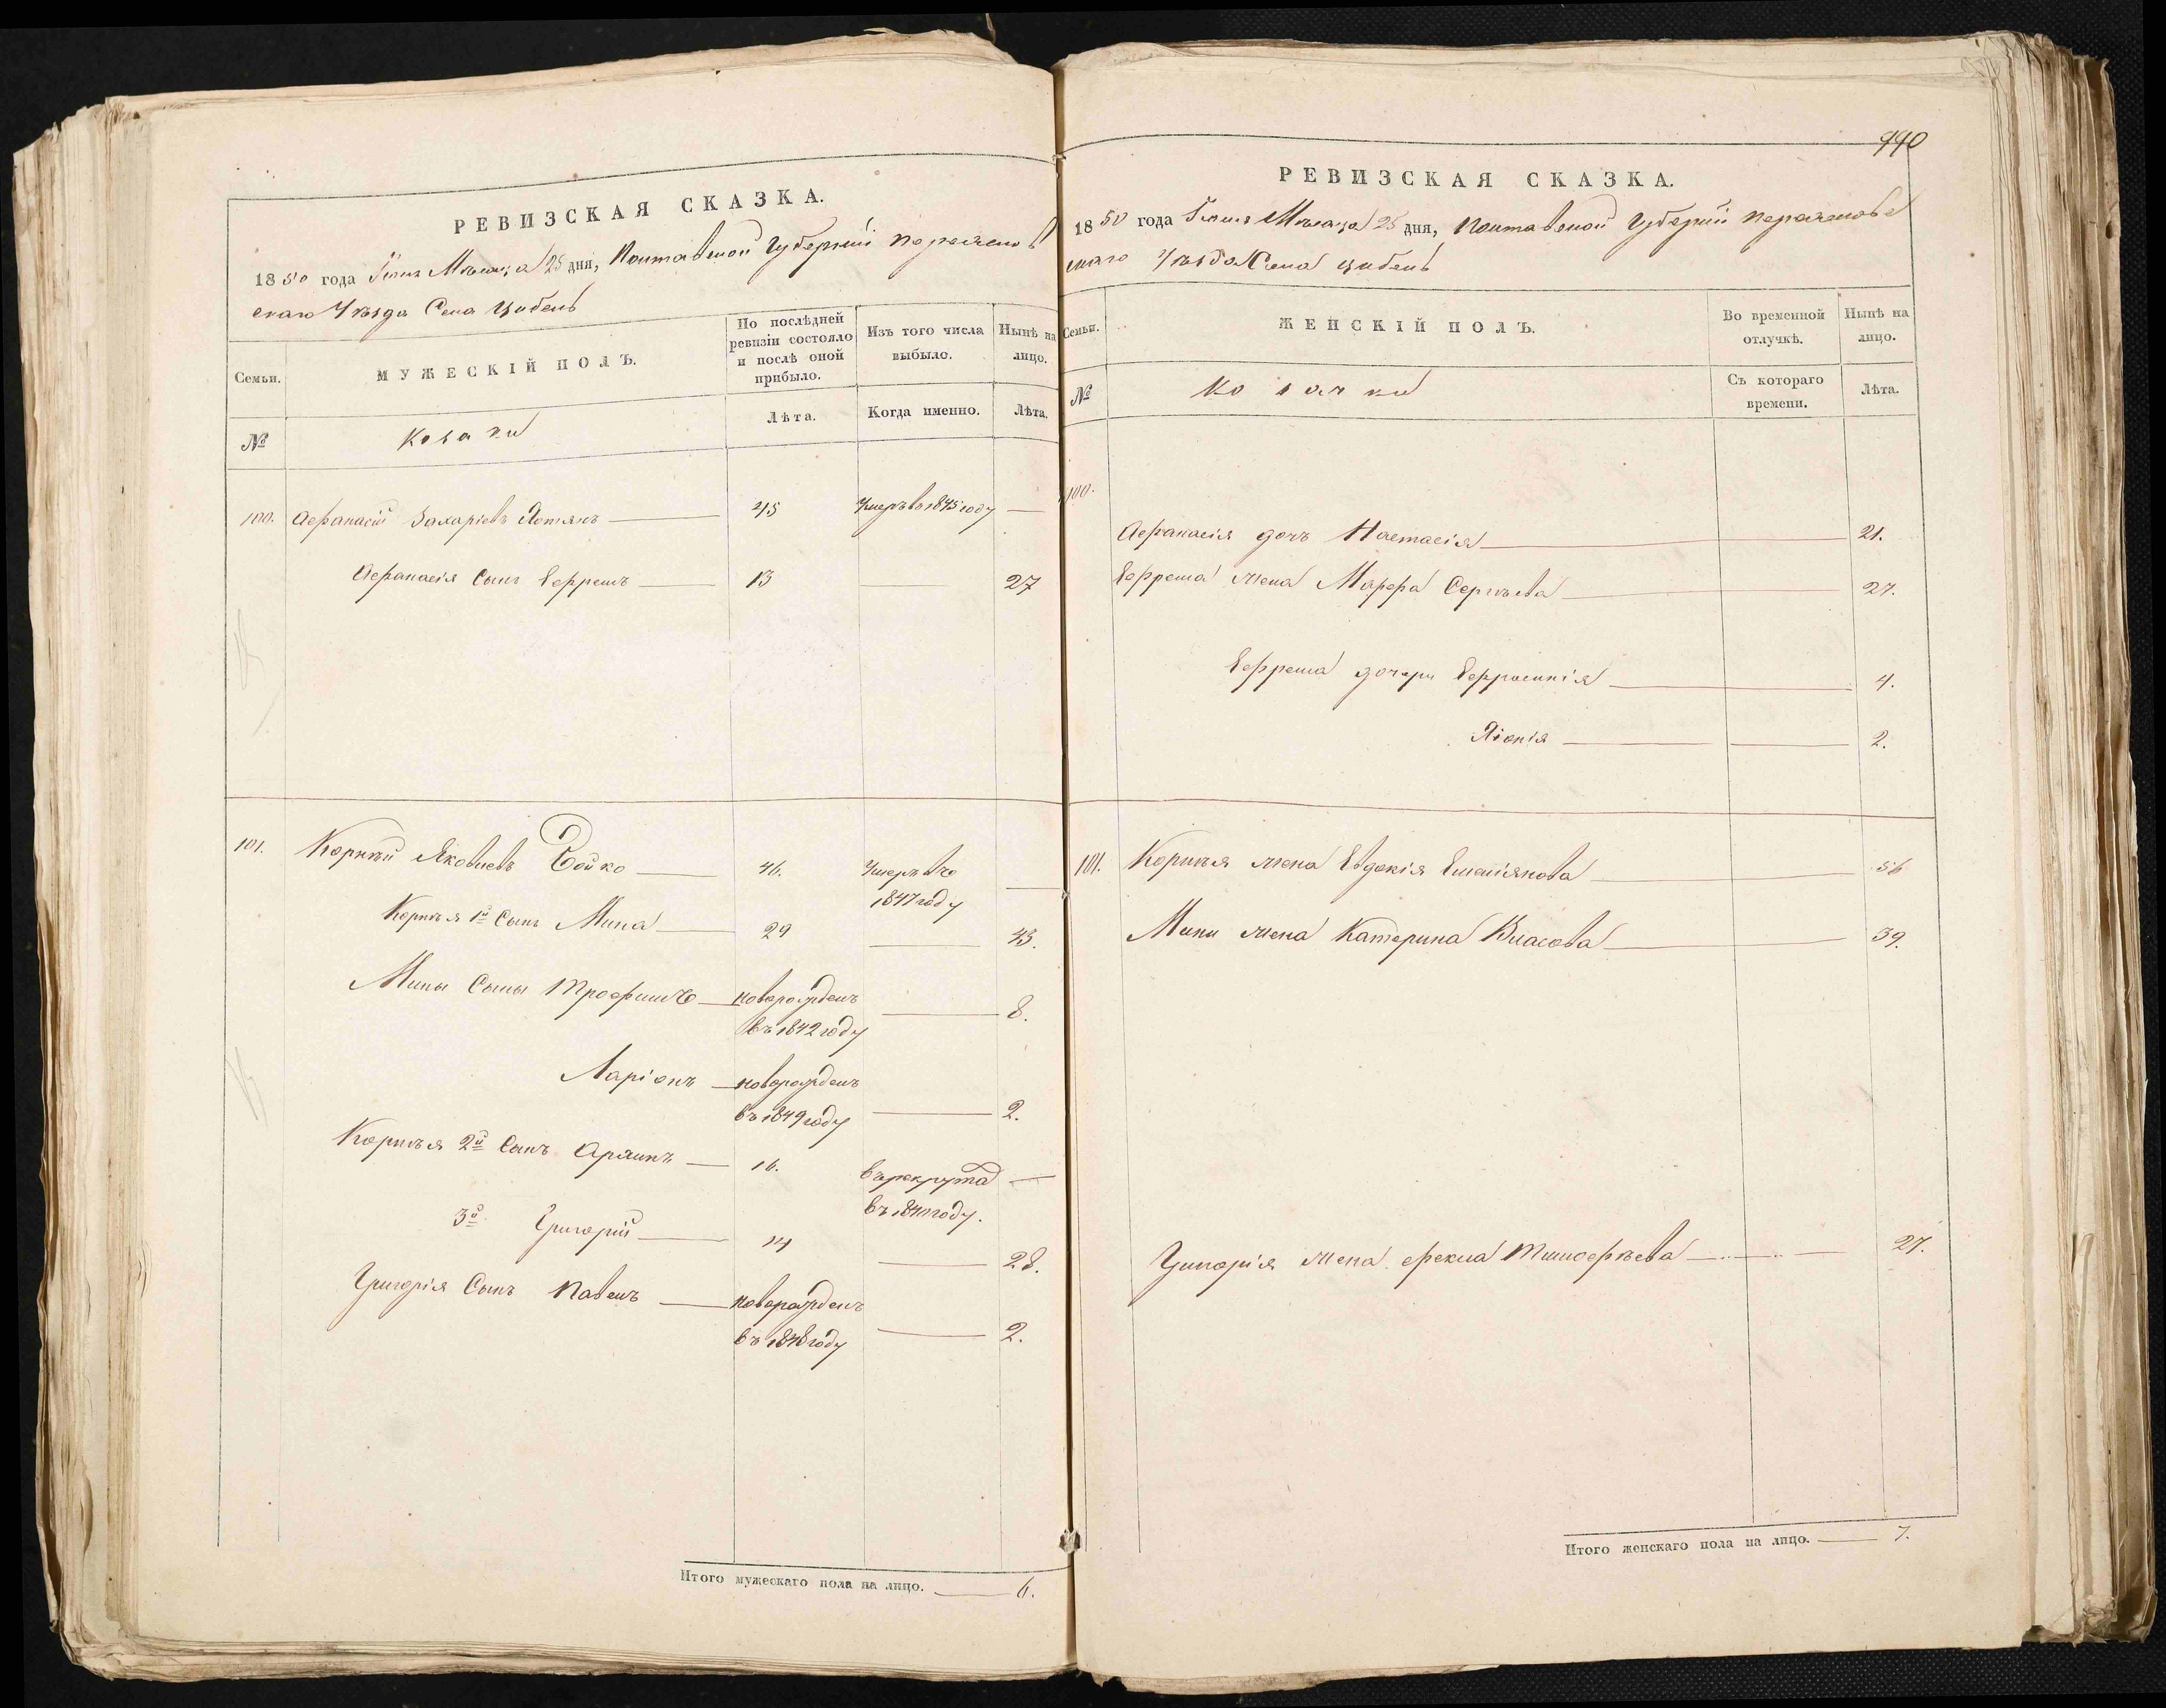 РЕВИЗСКАЯ СКАЗКА.
1850 года Іюля Мѣсяца 25 дня, Полтавской Губерніи Переяслов
скаго Уѣзда Села Цибель
Семьи.
МУЖЕСКІЙ ПОЛЪ.
По послѣдней ревизіи состояло и послѣ оной прибыло.
Изъ того числа выбыло.
Нынѣ на лицо.
№
Козаки
Лѣта.
Когда именно.
Лѣта.
100. Афанасій Захаріевъ 45 Умеръ въ 1845 году —
Афанасія Сынъ Ефремъ 13 — 27
101. Корнѣй Яковлевъ Бойко 46. Умеръ въ
1847 году —
Корнѣя 1й Сынъ Мина 29 — 43.
Мины Сыны Трофимъ новорожденъ
въ 1842 году — 8.
Ларіонъ новорожденъ
въ 1849 году — 2.
Корнѣя 2й Сынъ 16. въ рекрута —
въ году.
3й Григорій 14 — 28.
Григорія Сынъ Павелъ новорожденъ
въ 1848 году — 2.
Итого мужескаго пола на лицо. — 6.
990
РЕВИЗСКАЯ СКАЗКА.
1850 года Іюля Мѣсяца 25 дня, Полтавской Губерніи Переяслов
скаго Уѣзда Села Цибель
Семьи.
ЖЕНСКІЙ ПОЛЪ.
Во временной отлучкѣ.
Нынѣ на лицо.
№
Козачки
Съ котораго времени.
Лѣта.
100.
Афанасія дочь Настасія — 21.
Ефрема жена Марфа Сергѣева — 27.
Ефрема дочери Ефросинія — 4.
2.
101. Корнѣя жена Евдокія Емеліянова — 56
Мины жена Катерина Власова — 39.
Григорія жена Фекла Тимофѣева — 27.
Итого женскаго пола на лицо. — 7.